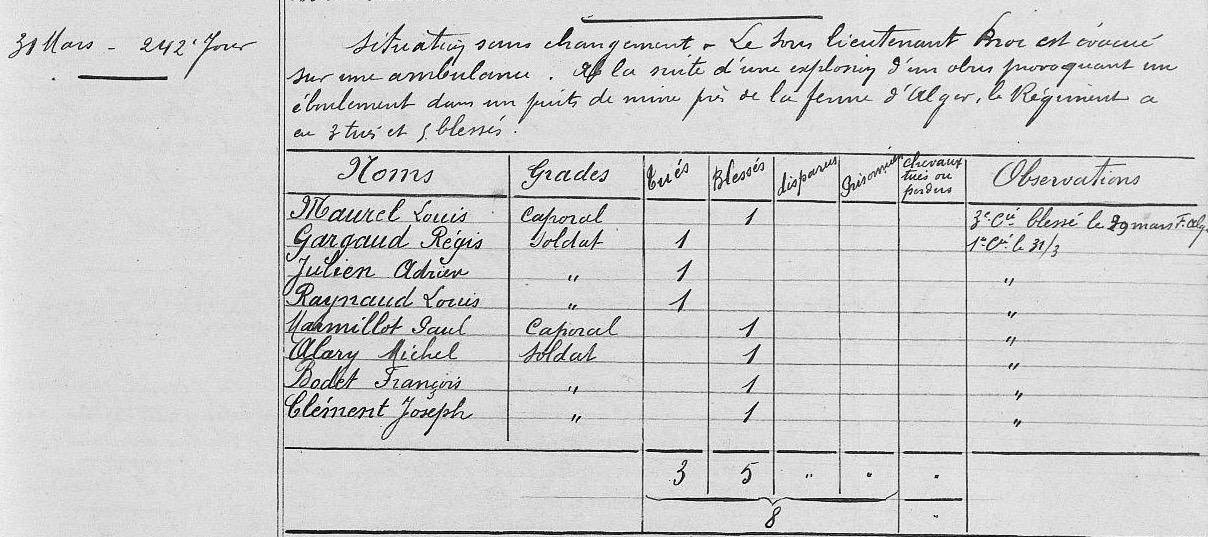 31 Mars - 242e Jour
Situation sans changement - Le Sous lieutenant Broc est évacué
sur une ambulance. A la suite d'une explosion d'un obus provoquant un
éboulement dans un puits de mine près de la ferme d'Alger, le Régiment a
eu 3 tués et 5 blessés.
Noms Grades Tués Blessés disparus Prisonniers chevaux tués ou perdus Observations
Maurel Louis Caporal 1 3e Cie blessé le 29 mars F. Alg
Gargaud Régis Soldat 1 1e Cie le 31/3
Julien Adrien " 1 "
Raynaud Louis " 1 "
Marmillot Paul Caporal 1 "
Alary Michel Soldat 1 "
Bodet François " 1 "
Clément Joseph " 1 "
3 5 " " "
8 "